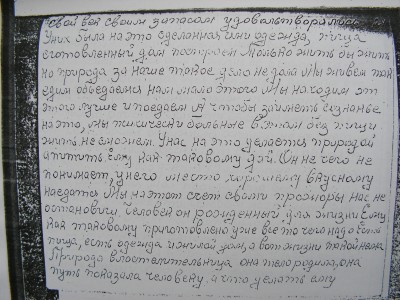 свой бой своим запасом удовольтворались
У них была на это сделанная ими одежда, пища
зготовленный дом построен Только жить бы жить
но природа за наше такое дело не дала Мы живем там
едим обьедаемся нам мало этого Мы находим эт
этого лучше и поедаем А чтобы заиметь сезнанье
на это, мы физически больные в этом без пищи
жить не сможем. У нас на это уделяется природой
аппетит ему как таковому дай. Он не чего не
понимает, у него место хорошему вкусному
наедатся Мы на этот счет своими просмоты нас не
остановиш. Человек он рожденный для жизни Ему
как таковому приготовлено уже все то чего надо есть
пища, есть одежда и жилой дом, а вот жизни такой нема
Природа властелительница она тело родила, она
путь показала человеку, а что делать ему